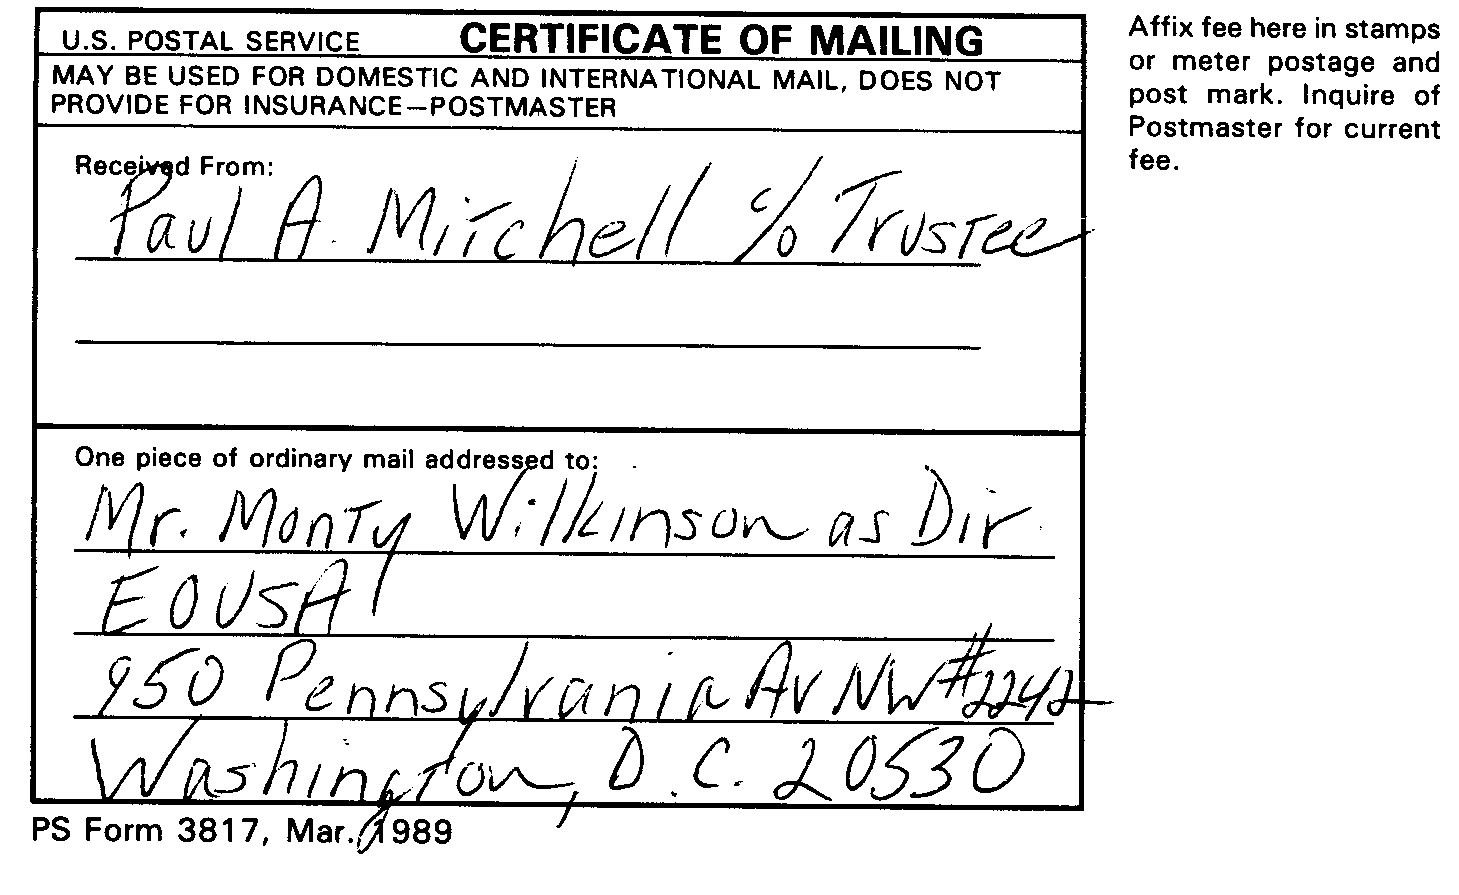 U.S. POSTAL SERVICE CERTIFICATE OF MAILING
MAY BE USED FOR DOMESTIC AND INTERNATIONAL MAIL, DOES NOT
PROVIDE FOR INSURANCE—POSTMASTER
Received From:
Paul A. Mitchell c/o Trustee
One piece of ordinary mail addressed to:
Mr. Monty Wilkinson as Dir.
EOUSA
950 Pennsylvania Av NW #2242
Washington, D.C. 20530
PS Form 3817, Mar. 1989
Affix fee here in stamps
or meter postage and
post mark. Inquire of
Postmaster for current
fee.